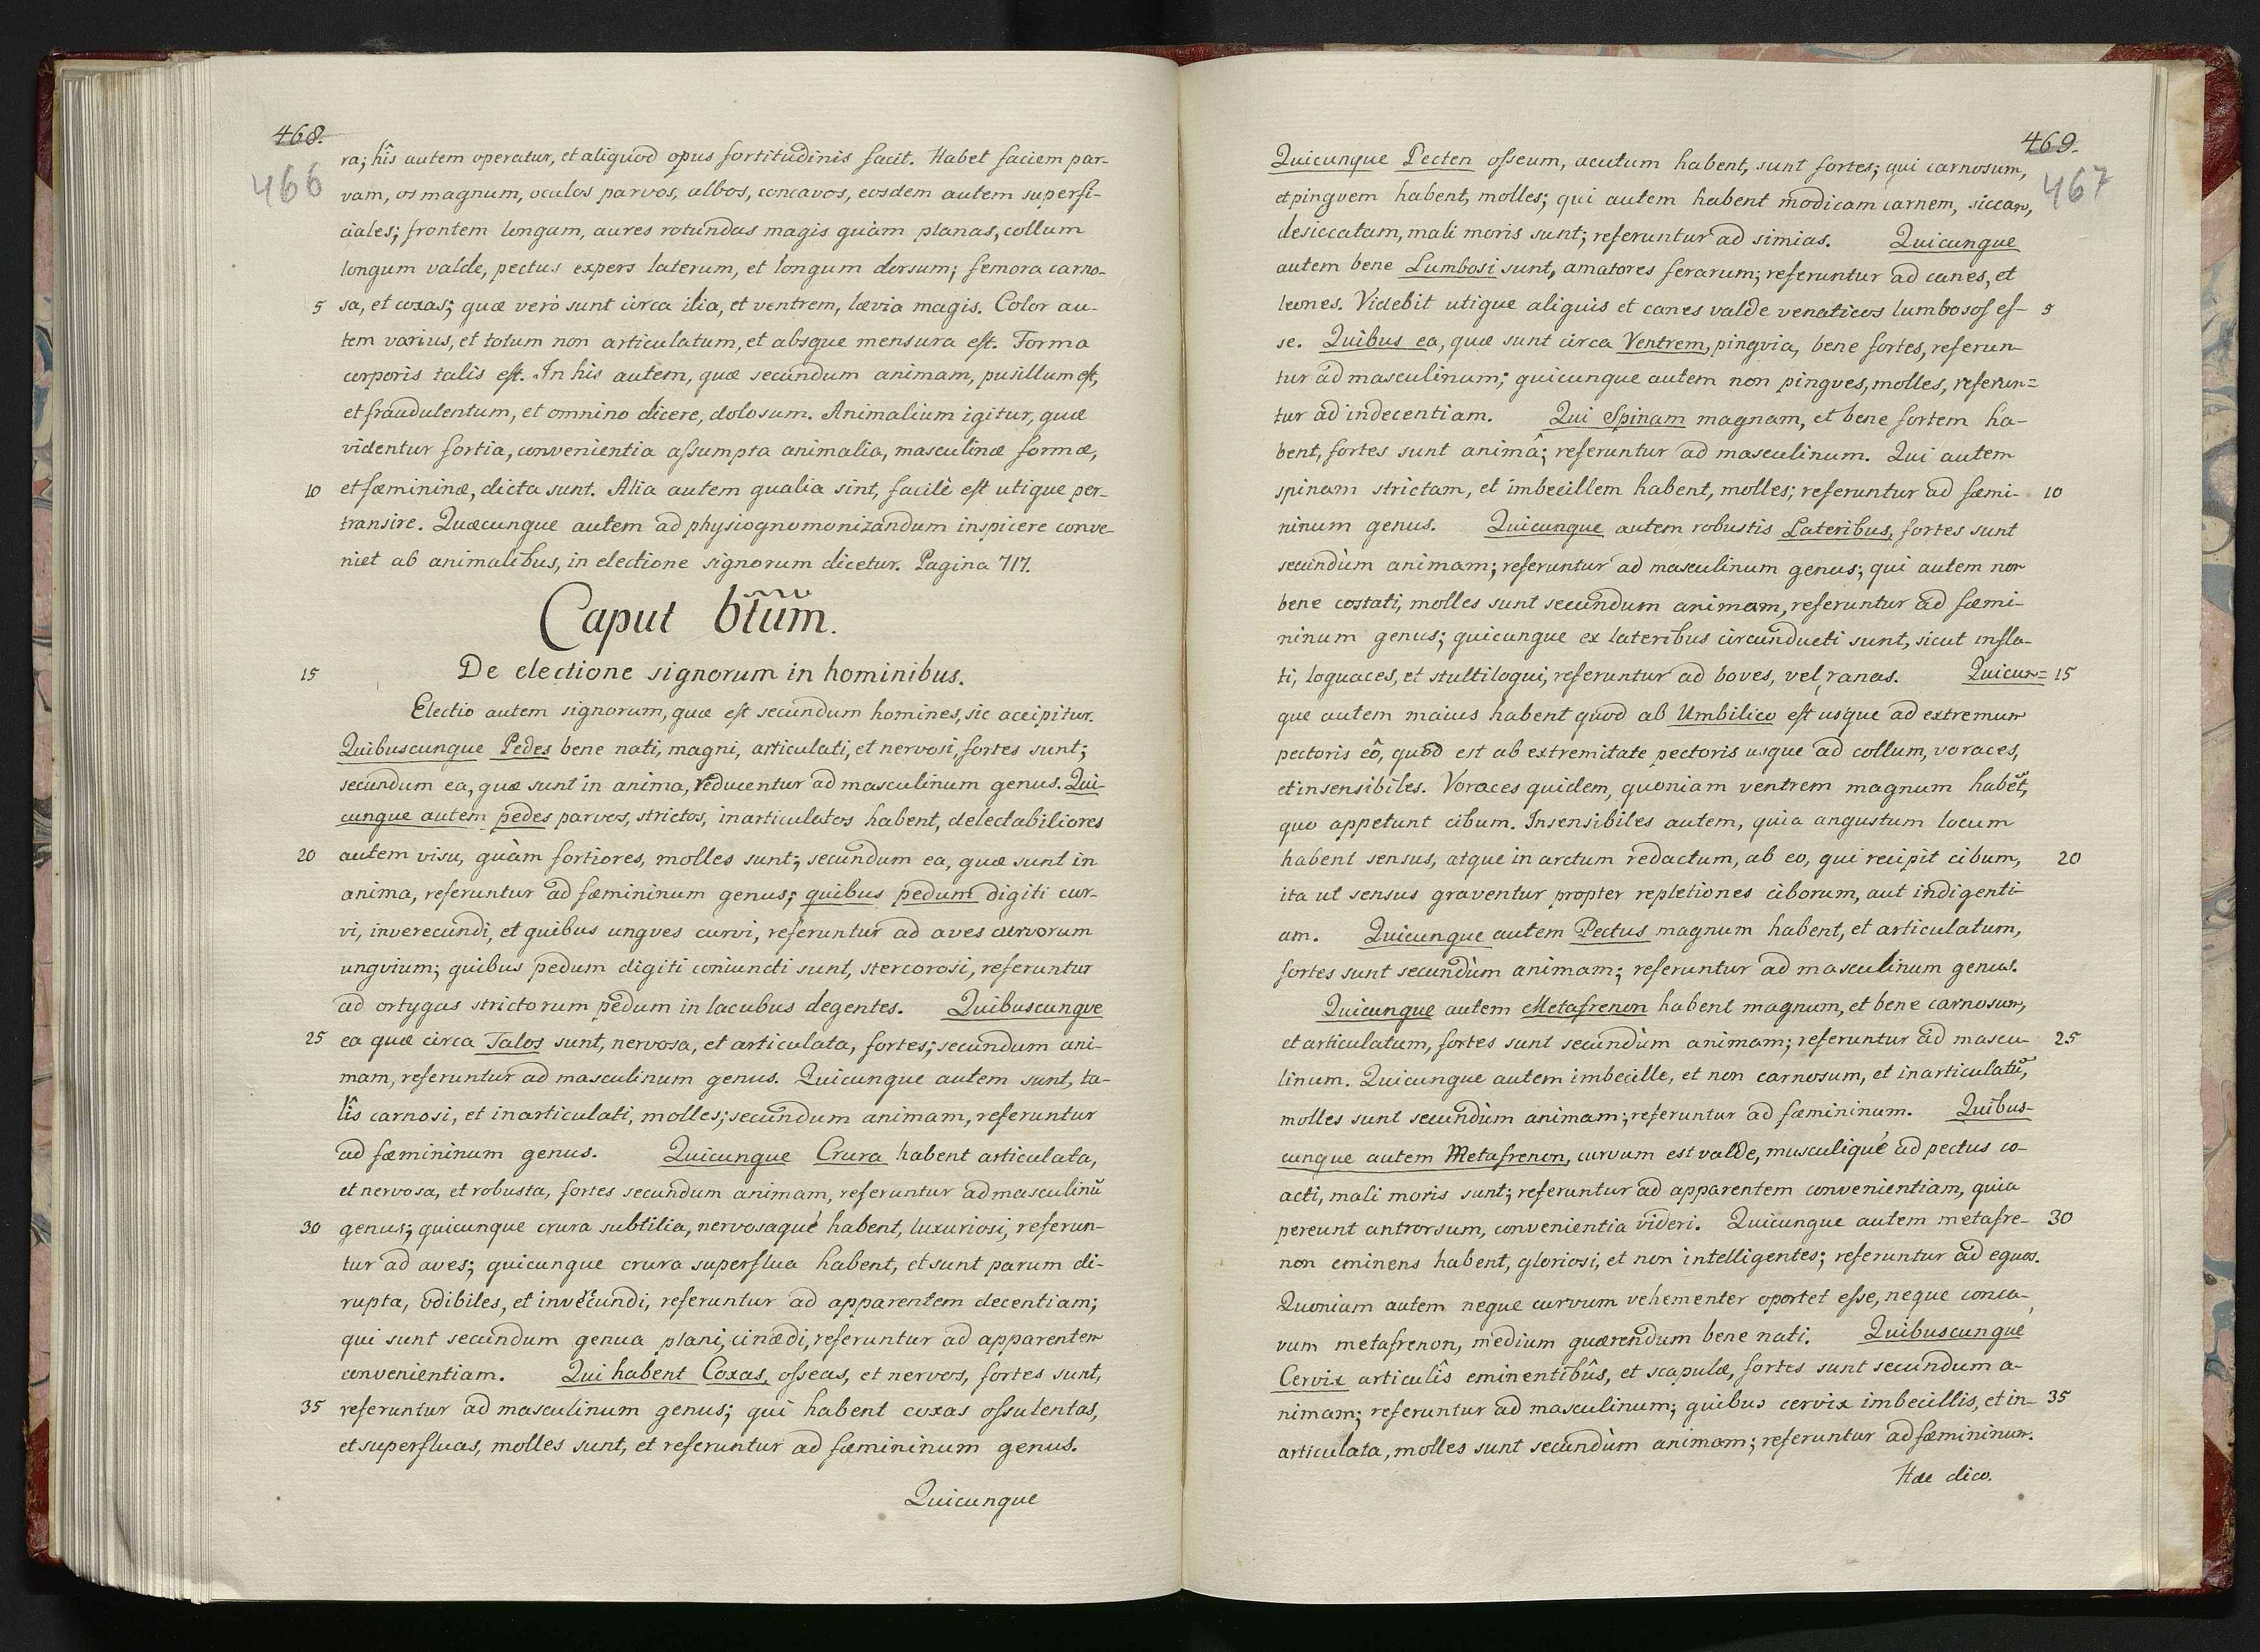 468.
466
ra; hîs autem operatur, et aliquod opus fortitudinis facit. Habet faciem par-
vam, os magnum, oculos parvos, albos, concavos, eosdem autem superfi-
ciales; frontem longam, aures rotundas magis quàm planas, collum
longum valde, pectus expers laterum, et longum dorsum; femora carno-
5 sa, et coxas; quæ verò sunt circa ilia, et ventrem, lævia magis. Color au-
tem varius, et totum non articulatum, et absque mensura est. Forma
corporis talis est. In his autem, quæ secundum animam, pusillum est,
et fraudulentum, et omnino dicere, dolosum. Animalium igitur, quæ
videntur fortia, convenientia assumpta animalia, masculinæ formæ,
10 et fæmininæ, dicta sunt. Alia autem qualia sint, facilè est utique per-
transire. Quæcunque autem ad physiognomonizandum inspicere conve-
niet ab animalibus, in electione signorum dicetur. Pagina 717.
Caput 6tum.
15 De electione signorum in hominibus.
Electio autem signorum, quæ est secundum homines, sic accipitur.
Quibuscunque Pedes bene nati, magni, articulati, et nervosi, fortes sunt;
secundum ea, quæ sunt in anima, reducentur ad masculinum genus. Qui-
cunque autem pedes parvos, strictos, inarticulatos habent, delectabiliores
20 autem visu, quàm fortiores, molles sunt; secundum ea, quæ sunt in
anima, referuntur ad fæmininum genus; quibus pedum digiti cur-
vi, inverecundi, et quibus ungves curvi, referuntur ad aves curvorum
ungvium; quibus pedum digiti coniuncti sunt, stercorosi, referuntur
ad ortygas strictorum pedum in lacubus degentes. Quibuscunque
25 ea quæ circa Talos sunt, nervosa, et articulata, fortes; secundum ani-
mam, referuntur ad masculinum genus. Quicunque autem sunt, ta-
lîs carnosi, et inarticulati, molles; secundum animam, referuntur
ad fæmininum genus. Quicunque Crura habent articulata,
et nervosa, et robusta, fortes secundum animam, referuntur ad masculinũ
30 genus; quicunque crura subtilia, nervosaqué habent, luxuriosi, referun-
tur ad aves; quicunque crura superflua habent, et sunt parum di-
rupta, odibiles, et invercundi, referuntur ad apparentem decentiam;
qui sunt secundum genua plani, cinædi, referuntur ad apparentem
convenientiam. Qui habent Coxas, osseas, et nervos, fortes sunt,
35 referuntur ad masculinum genus; qui habent coxas ossulentas,
et superfluas, molles sunt, et referuntur ad fæmininum genus.
Quicunque
469.
467
Quicunque Pecten osseum, acutum habent, sunt fortes; qui carnosum,
et pingvem habent, molles; qui autem habent modicam carnem, siccam,
desiccatam, mali moris sunt; referuntur ad simias. Quicunque
autem bene Lumbosi sunt, amatores ferarum; referuntur ad canes, et
leones. Videbit utique aliquis et canes valde venaticos lumbosos es- 5
se. Quibus ea, quæ sunt circa Ventrem, pingvia, bene fortes, referun
tur ad masculinum; quicunque autem non pingves, molles, referun=
tur ad indecentiam. Qui Spinam magnam, et bene fortem ha-
bent, fortes sunt animâ; referuntur ad masculinum. Qui autem
spinam strictam, et imbecillem habent, molles; referuntur ad fæmi- 10
ninum genus. Quicunque autem robustis Lateribus, fortes sunt
secundùm animam; referuntur ad masculinum genus; qui autem non
bene costati, molles sunt secundum animam, referuntur ad fæmi-
ninum genus; quicunque ex lateribus circunducti sunt, sicut infla-
ti, loquaces, et stultiloqui, referuntur ad boves, vel ranas. Quicun= 15
que autem maius habent quod ab Umbilico est usque ad extremum
pectoris eô, quod est ab extremitate pectoris usque ad collum, voraces,
et insensibiles. Voraces quidem, quoniam ventrem magnum habet,
quo appetunt cibum. Insensibiles autem, quia angustum locum
habent sensus, atque in arctum redactum, ab eo, qui recipit cibum, 20
ita ut sensus graventur propter repletiones ciborum, aut indigenti-
am. Quicunque autem Pectus magnum habent, et articulatum,
fortes sunt secundùm animam; referuntur ad masculinum genus.
Quicunque autem Metafrenon habent magnum, et bene carnosum,
et articulatum, fortes sunt secundùm animam; referuntur ad mascu- 25
linum. Quicunque autem imbecille, et non carnosum, et inarticulatũ,
molles sunt secundùm animam; referuntur ad fæmininum. Quibus-
cunque autem Metafrenon, curvum est valde, musculiqué ad pectus co-
acti, mali moris sunt; referuntur ad apparentem convenientiam, quia
pereunt antrorsum, convenientia videri. Quicunque autem metafre- 30
non eminens habent, gloriosi, et non intelligentes; referuntur ad equos.
Quoniam autem neque curvum vehementer oportet esse, neque conca-
vum metafrenon, medium quærendum bene nati. Quibuscunque
Cervix articulîs eminentibûs, et scapulæ, fortes sunt secundum a-
nimam; referuntur ad masculinum; quibus cervix imbecillis, et in- 35
articulata, molles sunt secundùm animam; referuntur ad fæmininum.
Hæc dico.